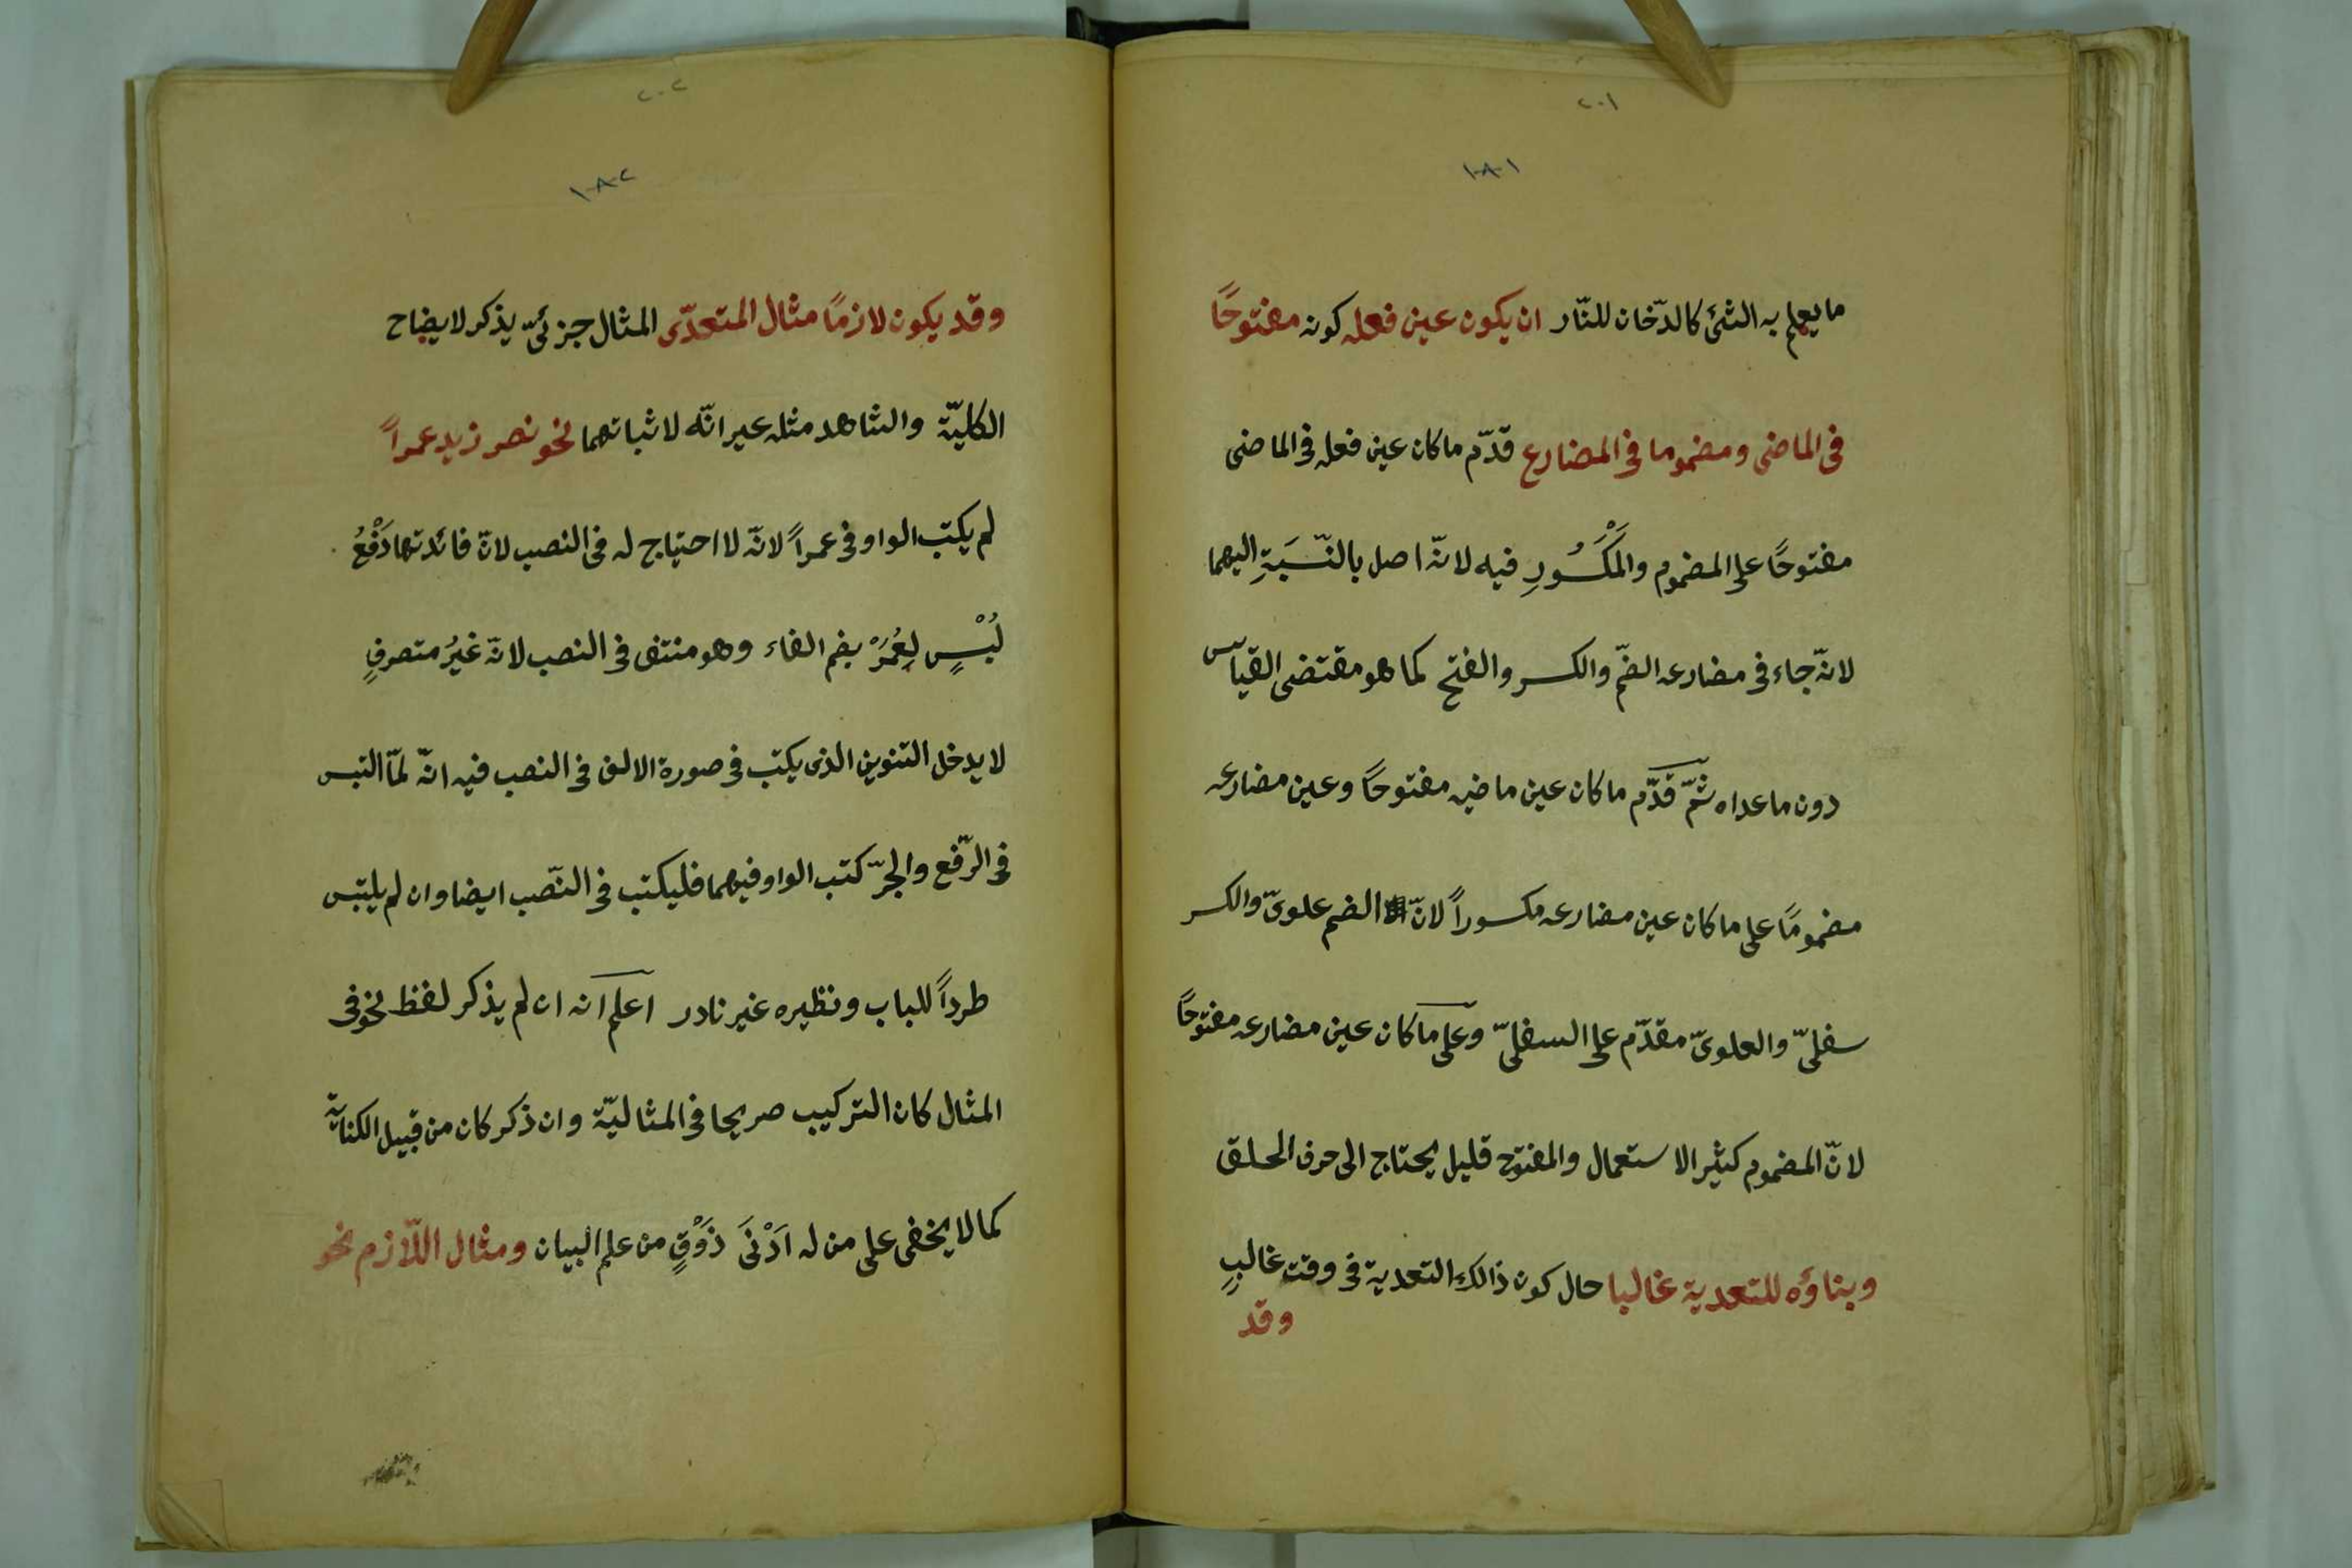 ٢٠١
١٠٨١
ما يعلم به الشئ كالدّخان للنّار ان يكون عين فعله كونه مفتوحًا
فى الماضى ومضموما فى المضارع قدّم ما كان عين فعله فى الماضى
مفتوحًا على المضموم والمَكْسُورِ فيه لانّه اصل بالنّسَبَةِ اليهما
لانّه جاء فى مضارعه الضّم والكسر والفتح كما هو مقتضى القياس
دون ما عداه ثمّ قدّم ما كان عين ماضيه مفتوحًا وعين مضارعه
مضمومًا على ما كان عين مضارعه مكسوراً لانّ الضم علوىّ والكسر
سفلىّ والعلوىّ مقدّم على السفلىّ وعلى ما كان عين مضارعه مفتوحًا
لانّ المضموم كثير الاستعمال والمفتوح قليل يحتاج الى حرف الحلق
وبناؤه للتعدية غالبا حال كون ذالك التعدية فى وقت غالبٍ
وقد
٢٠٢
١٠٨٢
وقد يكون لازمًا مثال المتعدّى المثال جزئىّ يذكر لايضاح
الكليّة والشاهد مثله غير انّه لاثباتهما نحو نصر زيد عمراً
لم يكتب الواو فى عمراً لانّه لا احتياج له فى النصب لانّ فائدتها دَفْعُ
لُبْسٍ لِعُمَرْ بضم الفاء وهو منتفى فى النصب لانّه غيرُ متصرفٍ
لا يدخل التنوين الذى يكتب فى صورة الالف فى النصب فيه انّه لمّا التبس
فى الرّفع والجرّ كتب الواو فيهما فليكتب فى النّصب ايضا وان لم يلبتس
طرداً للباب ونظيره غير نادر اعلم انه ان لم يذكر لفظ نحو فى
المثال كان التركيب صريحا فى المثاليّة وان ذكر كان من قبيل الكناية
كما لا يخفى على من له اَدْنَى ذَوْقٍ من علم البيان ومثال اللّازم نحو